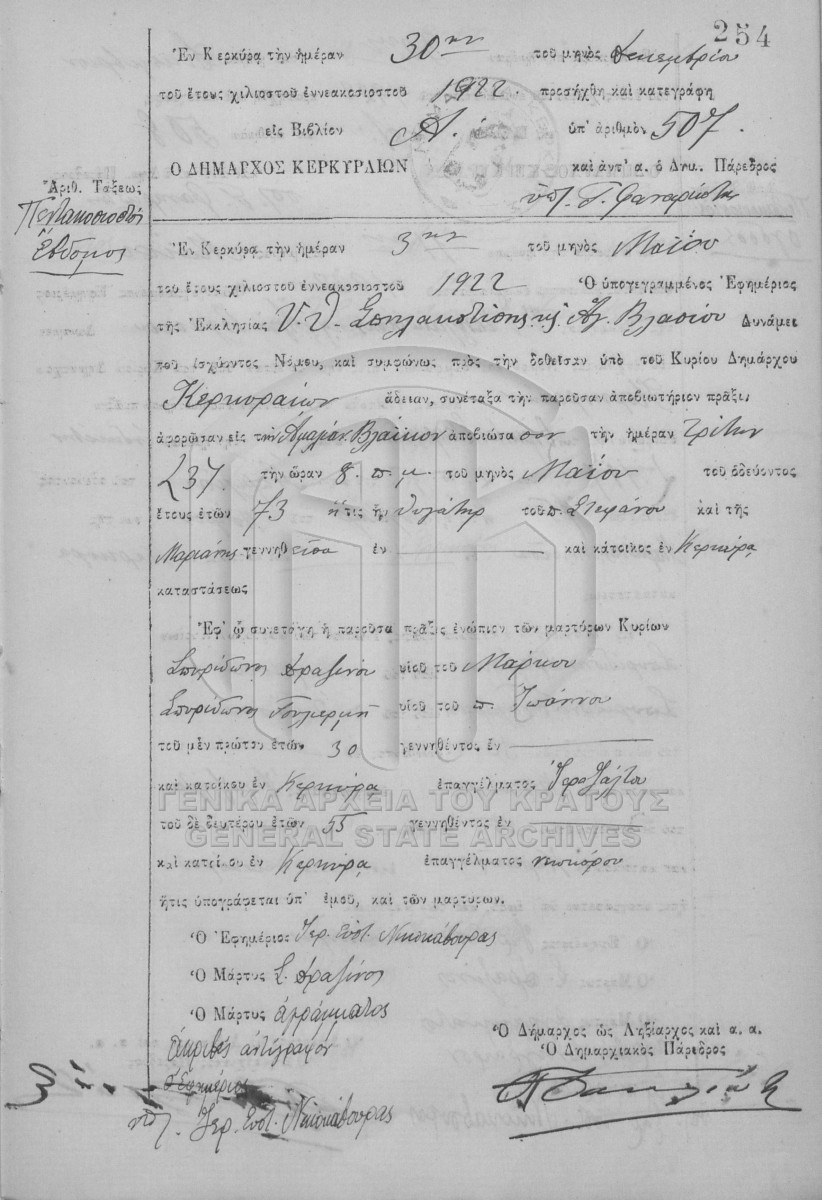 254
Ἐν Κερκύρᾳ τὴν ἡμέραν 30ην τοῦ μηνὸς Δεκεμβρίου
τοῦ ἔτους χιλιοστοῦ ἐννεακοσιοστοῦ 1922. προσήχθη καὶ κατεγράφη
εἰς Βιβλίον Α. ὑπ' ἀριθμὸν 507.
Ο ΔΗΜΑΡΧΟΣ ΚΕΡΚΥΡΑΙΩΝ καὶ ἀντ' α. ὁ Δημ. Πάρεδρος
Ἀριθ. Τάξεως
Πεντακοσιοστὸς
Ἕβδομος
ὑπ. Γ.
Ἐν Κερκύρᾳ τὴν ἡμέραν 3ην τοῦ μηνὸς Μαΐου
τοῦ ἔτους χιλιοστοῦ ἐννεακοσιοστοῦ 1922 Ὁ ὑπογεγραμμένος Ἐφημέριος
τῆς Ἐκκλησίας Υ. Θ. Σπηλαιωτίσσης κ Ἁγ. Βλασίου Δυνάμει
τοῦ ἰσχύοντος Νόμου, καὶ συμφώνως πρὸς τὴν δοθεῖσαν ὑπὸ τοῦ Κυρίου Δημάρχου
Κερκυραίων ἄδειαν, συνέταξα τὴν παροῦσαν ἀποβιωτήριον πρᾶξιν
ἀφορῶσαν εἰς τὴν Ἀμαλίαν Βλαΐκου ἀποβιώσασαν τὴν ἡμέραν τρίτην
(3ην) τὴν ὥραν 8. π. μ. τοῦ μηνὸς Μαΐου τοῦ ὁδεύοντος
ἔτους ἐτῶν 73 ἥτις ἦν θυγάτηρ τοῦ π. Στεφάνου καὶ τῆς
Μαριάνης γεννηθεῖσα ἐν καὶ κάτοικος ἐν Κερκύρᾳ
καταστάσεως
Ἐφ' ᾧ συνετάγη ἡ παροῦσα πρᾶξις ἐνώπιον τῶν μαρτύρων Κυρίων
Σπυρίδωνος Δραζίνου υἱοῦ τοῦ Μάρκου
Σπυρίδωνος υἱοῦ τοῦ π. Ἰωάννου
τοῦ μὲν πρώτου ἐτῶν 30 γεννηθέντος ἐν
καὶ κατοίκου ἐν Κερκύρᾳ ἐπαγγέλματος Ἱεροψάλτου
ΓΕΝΙΚΑ ΑΡΧΕΙΑ ΤΟΥ ΚΡΑΤΟΥΣ
τοῦ δὲ δευτέρου ἐτῶν 55 γεννηθέντος ἐν
GENERAL STATE ARCHIVES
καὶ κατοίκου ἐν Κερκύρᾳ ἐπαγγέλματος νεωκόρου
ἥτις ὑπογράφεται ὑπ' ἐμοῦ, καὶ τῶν μαρτύρων.
Ὁ Ἐφημέριος Ἱερ. Εὐστ. Νικοκάβουρας
Ὁ Μάρτυς Σ. Δραζίνος
Ὁ Μάρτυς ἀγράμματος
Ἀκριβὲς ἀντίγραφον
Ὁ Ἐφημέριος
ὑπ. Ἱερ. Εὐστ. Νικοκάβουρας
Ὁ Δήμαρχος ὡς Ληξίαρχος καὶ α. α.
Ὁ Δημαρχιακὸς Πάρεδρος